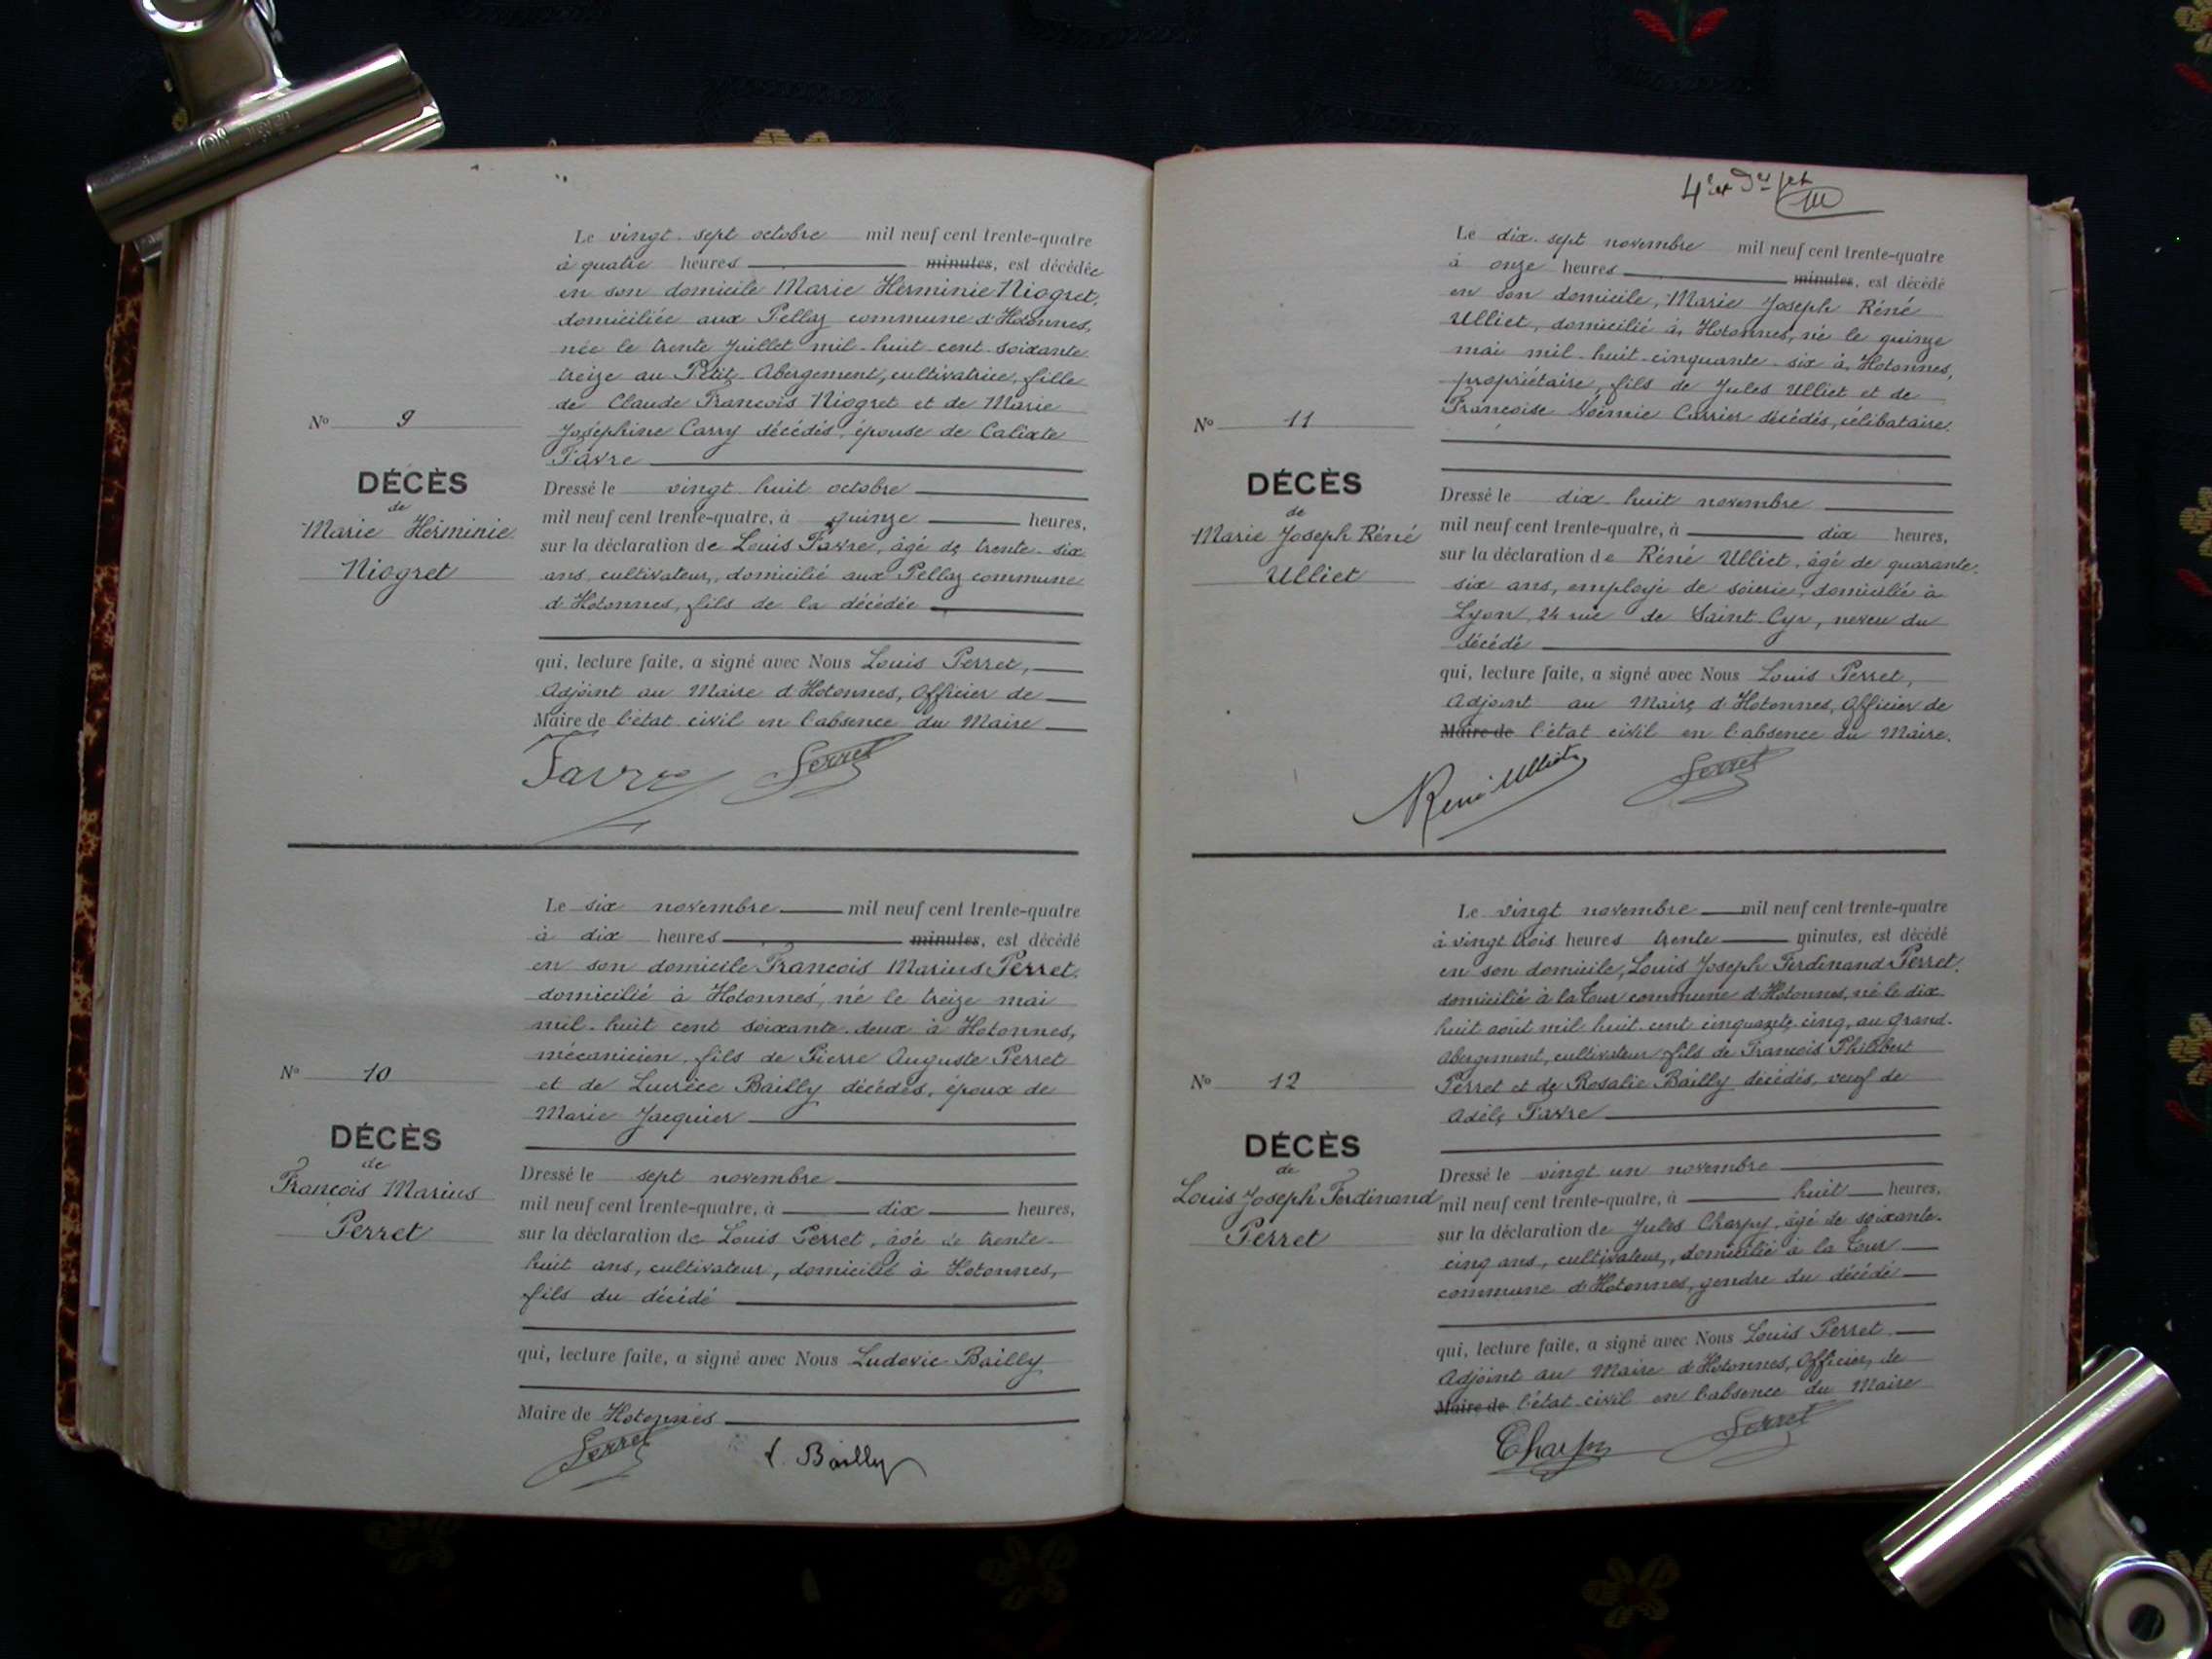 Le vingt-sept octobre mil neuf cent trente-quatre
à quatre heures minutes, est décédée
en son domicile Marie Herminie Niogret,
domiciliée aux Pellaz commune d'Hotonnes,
née le trente Juillet mil-huit-cent-soixante
treize au Petit-Abergement, cultivatrice, fille
de Claude François Niogret et de Marie
Joséphine Carry décédés, épouse de Calixte
Favre
Nº 9
DÉCÈS
de
Marie Herminie
Niogret
Dressé le vingt-huit octobre
mil neuf cent trente-quatre, à quinze heures,
sur la déclaration de Louis Favre, âgé de trente-six
ans, cultivateur, domicilié aux Pellaz commune
d'Hotonnes, fils de la décédée
qui, lecture faite, a signé avec Nous Louis Perret,
Adjoint au Maire d'Hotonnes, Officier de
Maire de l'état-civil en l'absence du Maire
Favre Perret
Le six novembre mil neuf cent trente-quatre
à dix heures minutes, est décédé
en son domicile François Marius Perret.
domicilié à Hotonnes, né le treize mai
mil-huit cent soixante-deux à Hotonnes,
mécanicien, fils de Pierre Auguste Perret
et de Lucrèce Bailly décédés, époux de
Marie Jacquier
Nº 10
DÉCÈS
de
François Marius
Perret
Dressé le sept novembre
mil neuf cent trente-quatre, à dix heures,
sur la déclaration de Louis Perret, âgé de trente-
huit ans, cultivateur, domicilié à Hotonnes,
fils du décédé
qui, lecture faite, a signé avec Nous Ludovic Bailly
Maire de Hotonnes
Perret L. Bailly
Le dix-sept novembre mil neuf cent trente-quatre
à onze heures minutes, est décédé
en son domicile, Marie Joseph Réné
Ulliet, domicilié à Hotonnes, né le quinze
mai mil-huit-cinquante-six à Hotonnes,
propriétaire, fils de Jules Ulliet et de
Françoise Noémie Carrier décédés, célibataire.
Nº 11
DÉCÈS
de
Marie Joseph Réné
Ulliet
Dressé le dix-huit novembre
mil neuf cent trente-quatre, à dix heures,
sur la déclaration de Réné Ulliet, âgé de quarante-
six ans, employé de soierie, domicilié à
Lyon, 24 rue de Saint-Cyr, neveu du
décédé
qui, lecture faite, a signé avec Nous Louis Perret,
Adjoint au Maire d'Hotonnes, Officier de
Maire de l'état-civil en l'absence du Maire.
René Ulliet Perret
Le vingt novembre mil neuf cent trente-quatre
à vingt trois heures trente minutes, est décédé
en son domicile, Louis Joseph Ferdinand Perret.
domicilié à la Cour commune d'Hotonnes, né le dix-
huit août mil-huit-cent-cinquante-cinq, au Grand-
Abergement, cultivateur, fils de François Philibert
Perret et de Rosalie Bailly décédés, veuf de
Adèle Favre
Nº 12
DÉCÈS
de
Louis Joseph Ferdinand
Perret
Dressé le vingt-un novembre
mil neuf cent trente-quatre, à huit heures,
sur la déclaration de Jules Charpy, âgé de soixante-
cinq ans, cultivateur, domicilié à la Cour
commune d'Hotonnes, gendre du décédé
qui, lecture faite, a signé avec Nous Louis Perret
Adjoint au Maire d'Hotonnes, Officier de
Maire de l'état-civil en l'absence du Maire
Charpy Perret